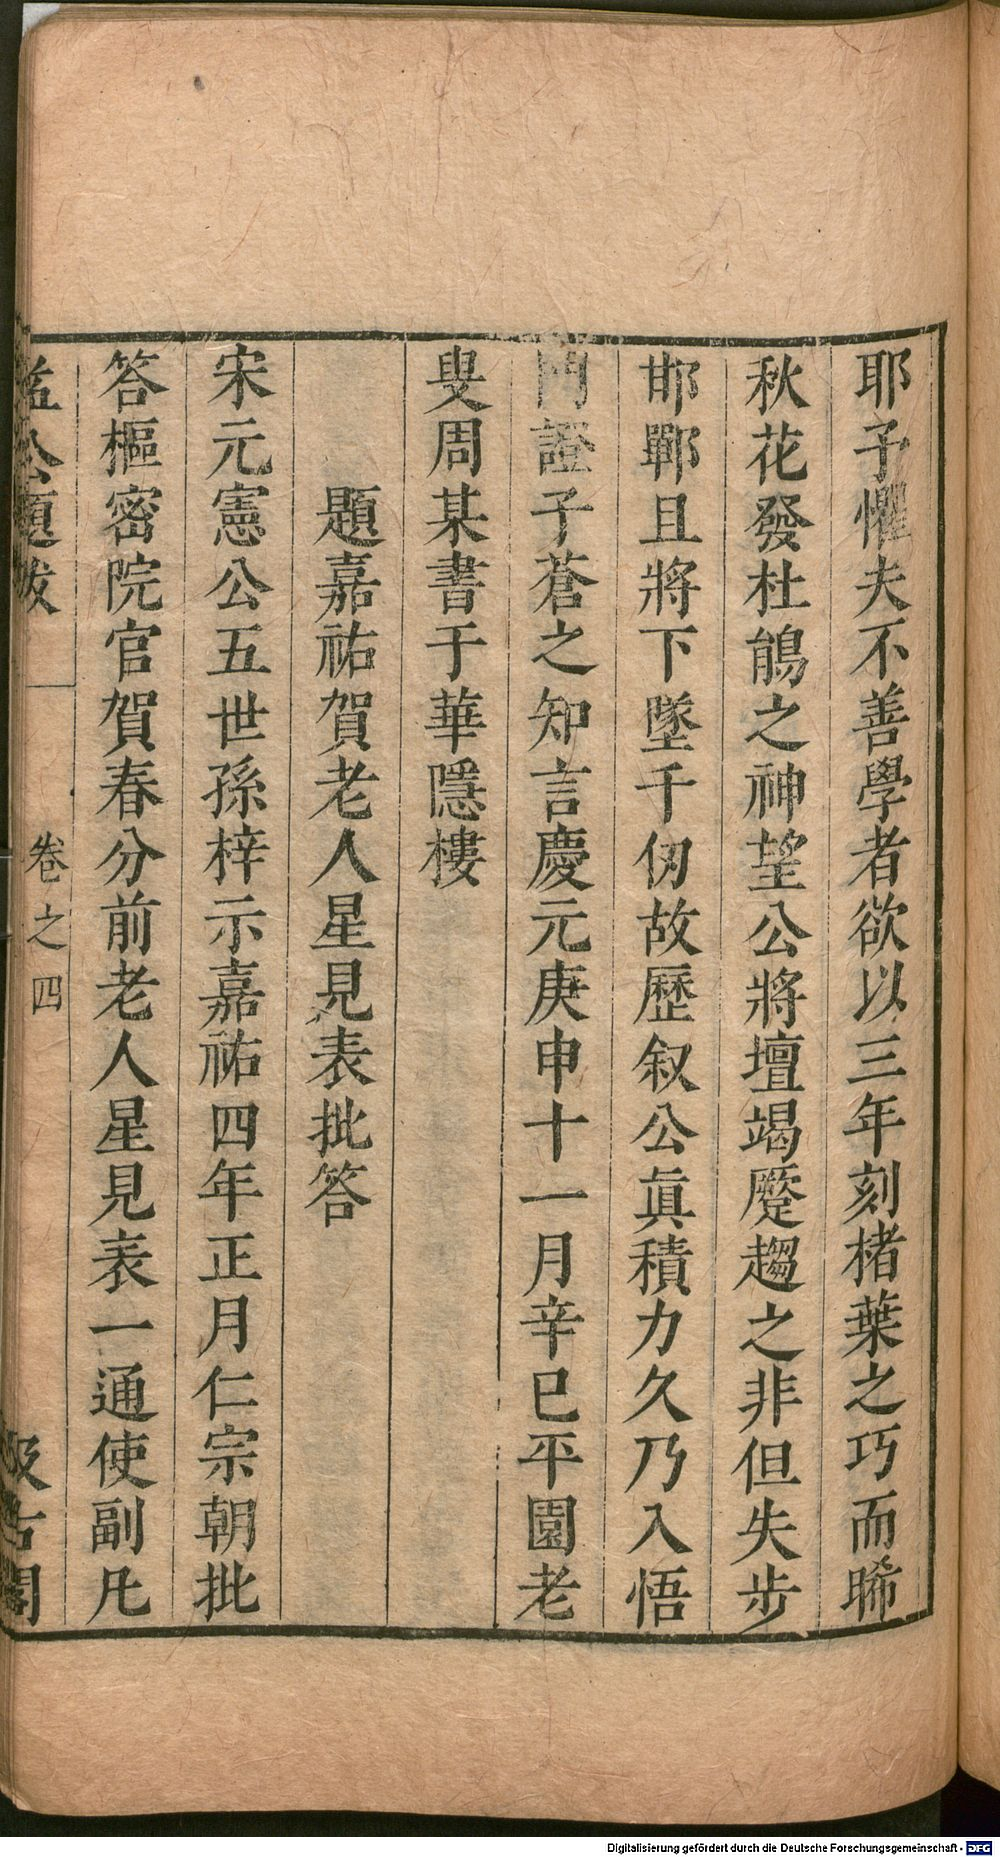 耶予懼夫不善學者欲以三年刻楮葉之巧而睎
秋花發杜鵑之神望公將壇竭蹷趨之非但失步
邯鄲且將下墜千仞故歷叙公眞積力久乃入悟
門證子蒼之知言慶元庚申十一月辛巳平園老
叟周某書于華隱樓
題嘉祐賀老人星見表批答
宋元憲公五世孫梓示嘉祐四年正月仁宗朝批
答樞密院官賀春分前老人星見表一通使副凡
益公題跋
卷之四
汲古閣
Digitalisierung gefördert durch die Deutsche Forschungsgemeinschaft - DFG